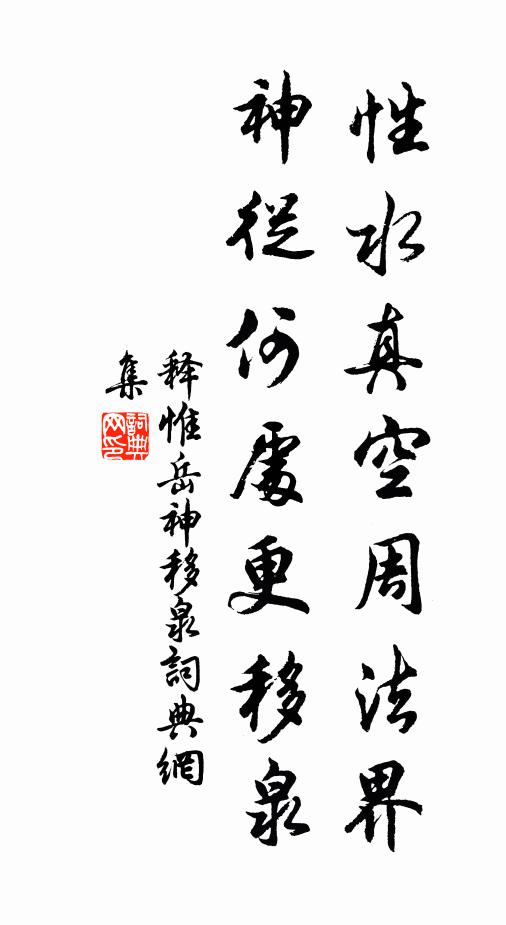 性水真空周法界
神從何處更移泉
释惟岳神移泉詞典網
集
詞典网印